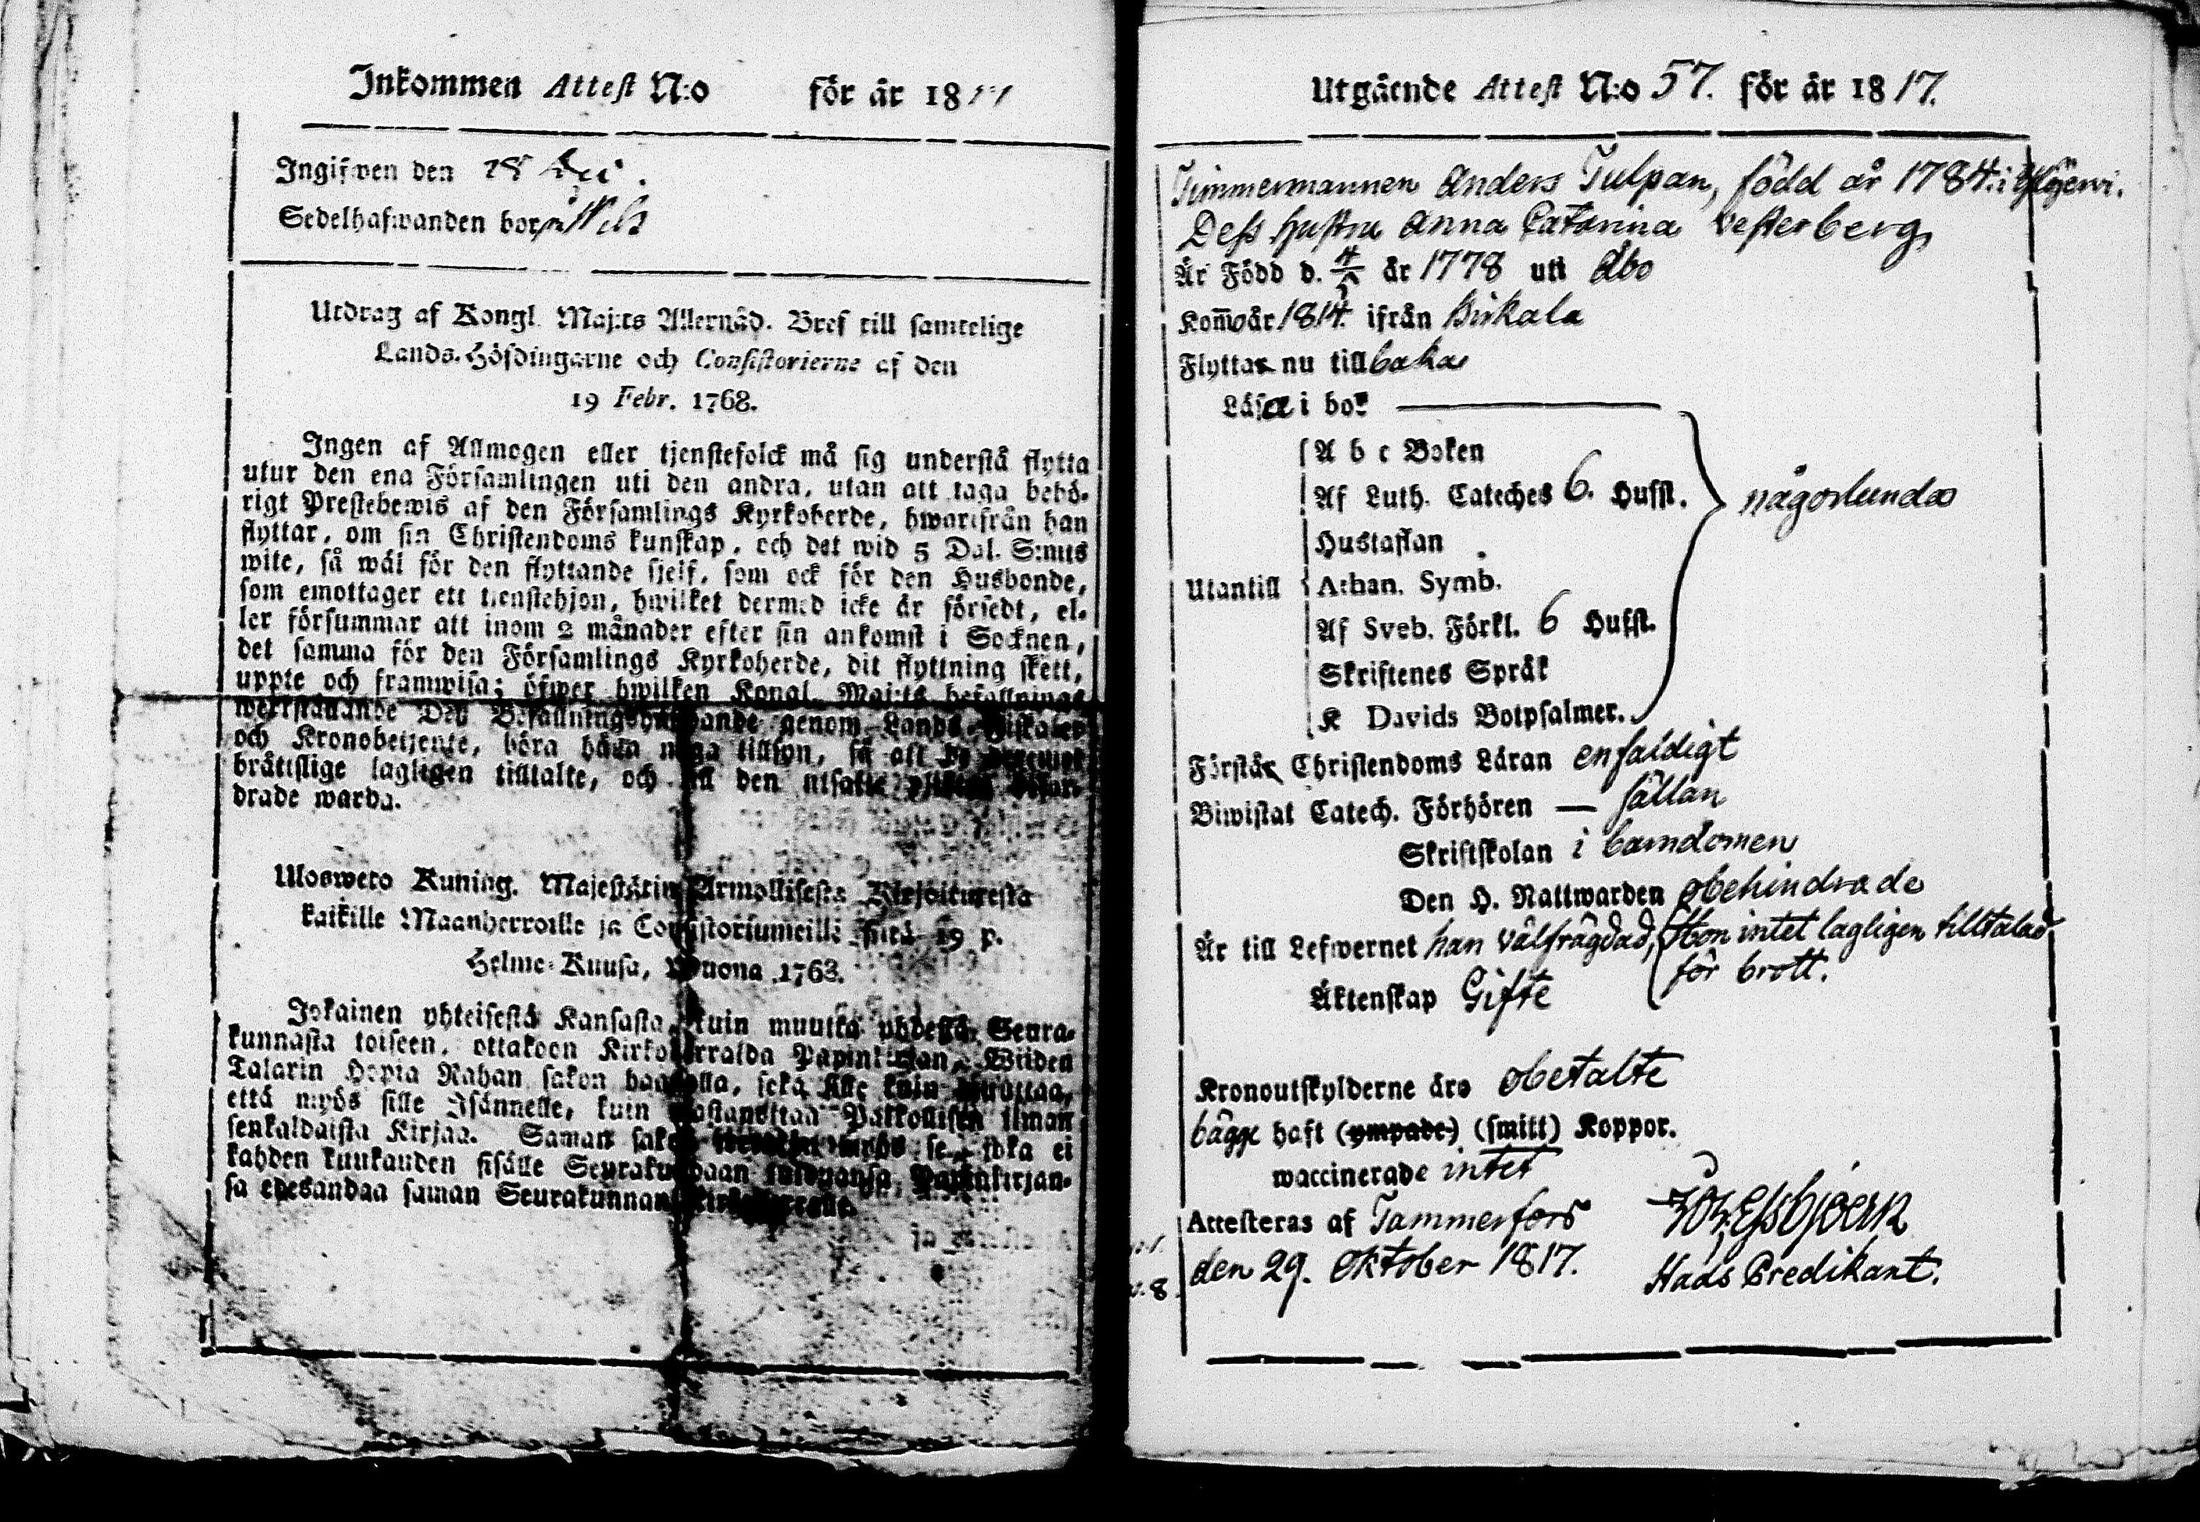 Inkommen Attest N:o för år 18
Ingifwen den
Sedelhafwanden bor
Utdrag af Kongl. Maj:ts Allernåd. Bref till samtelige
Lands-Höfdingarne och Consistorierne af den
19 Febr. 1768.
Ingen af Allmogen eller tjenstefolck må sig understå flytta
utur den ena Församlingen uti den andra, utan att taga behö-
rigt Prestebewis af den Församlings Kyrkoherde, hwarifrån han
flyttar, om sin Christendoms kunskap, och det wid 5 Dal. S:mts
wite, så wäl för den flyttande sjelf, som ock för den Husbonde,
som emottager ett tienstehjon, hwilket dermed icke är försedt, el-
ler försummar att inom 2 månader efter sin ankomst i Socknen,
det samma för den Församlings Kyrkoherde, dit flyttning skett,
uppte och framwisa; öfwer hwilken Kongl. Maj:ts befallnings
werkställande Des Befallningshafwande genom Lands-Fiskaler
och Kronobetjente, böra hafwa noga tillsyn, så att
bråttslige lagligen tilltalte, och till den utsatte
drade warda.
Uloswето Kuning. Majestätin Armollisesta Kirjoituresta
kaikille Maanherroille ja Consistoriumeille siitä 19 p.
Helme-Kuusa, Wuona 1768.
Jokainen yhteisestä Kansasta, kuin muutta yhdestä Seura-
kunnasta toiseen, ottakoon Kirkoherralda Papinkirjan, Wiiden
Talarin Hopia Rahan sakon haastolla, sekä sille kuin muuttaa,
että myös sille Isännelle, kuin wastanottaa Palkollisen ilman
senkaldaista Kirjaa. Saman sakon se, joka ei
kahden kuukauden sisälle Seurakundaan tulduansa, Papinkirjan-
sa edesandaa saman Seurakunnan Kirkoherralle.
Utgående Attest N:o 57. för år 1817.
Timmermannen Anders Tulpan, född år 1784. i
Dess hustru Anna Catarina Vesterberg,
Är Född d. 4/5 år 1778 uti Åbo
Kom̃o år 1814. ifrån Birkala
Flyttar nu tillbaka
Läsa i bok
A b c Boken
Af Luth. Cateches 6. Hufst.
någorlunda
Hustaflan
Utantill
Athan. Symb.
Af Sveb. Förkl. 6 Hufst.
Skriftenes Språk
K Davids Botpsalmer.
Förstår Christendoms Läran enfaldigt
Biwistat Catech. Förhören — sällan
Skriftskolan i barndomen
Den H. Nattwarden obehindrade
Är till Lefwernet han välfrägdad, Hon intet lagligen tilltalad
för brott.
Äktenskap Gifte
Kronoutskylderne äro obetalte
bägge haft (ympade) (smitt) Koppor.
waccinerade intet
Attesteras af Tammerfors
den 29. Oktober 1817.
Predikant.